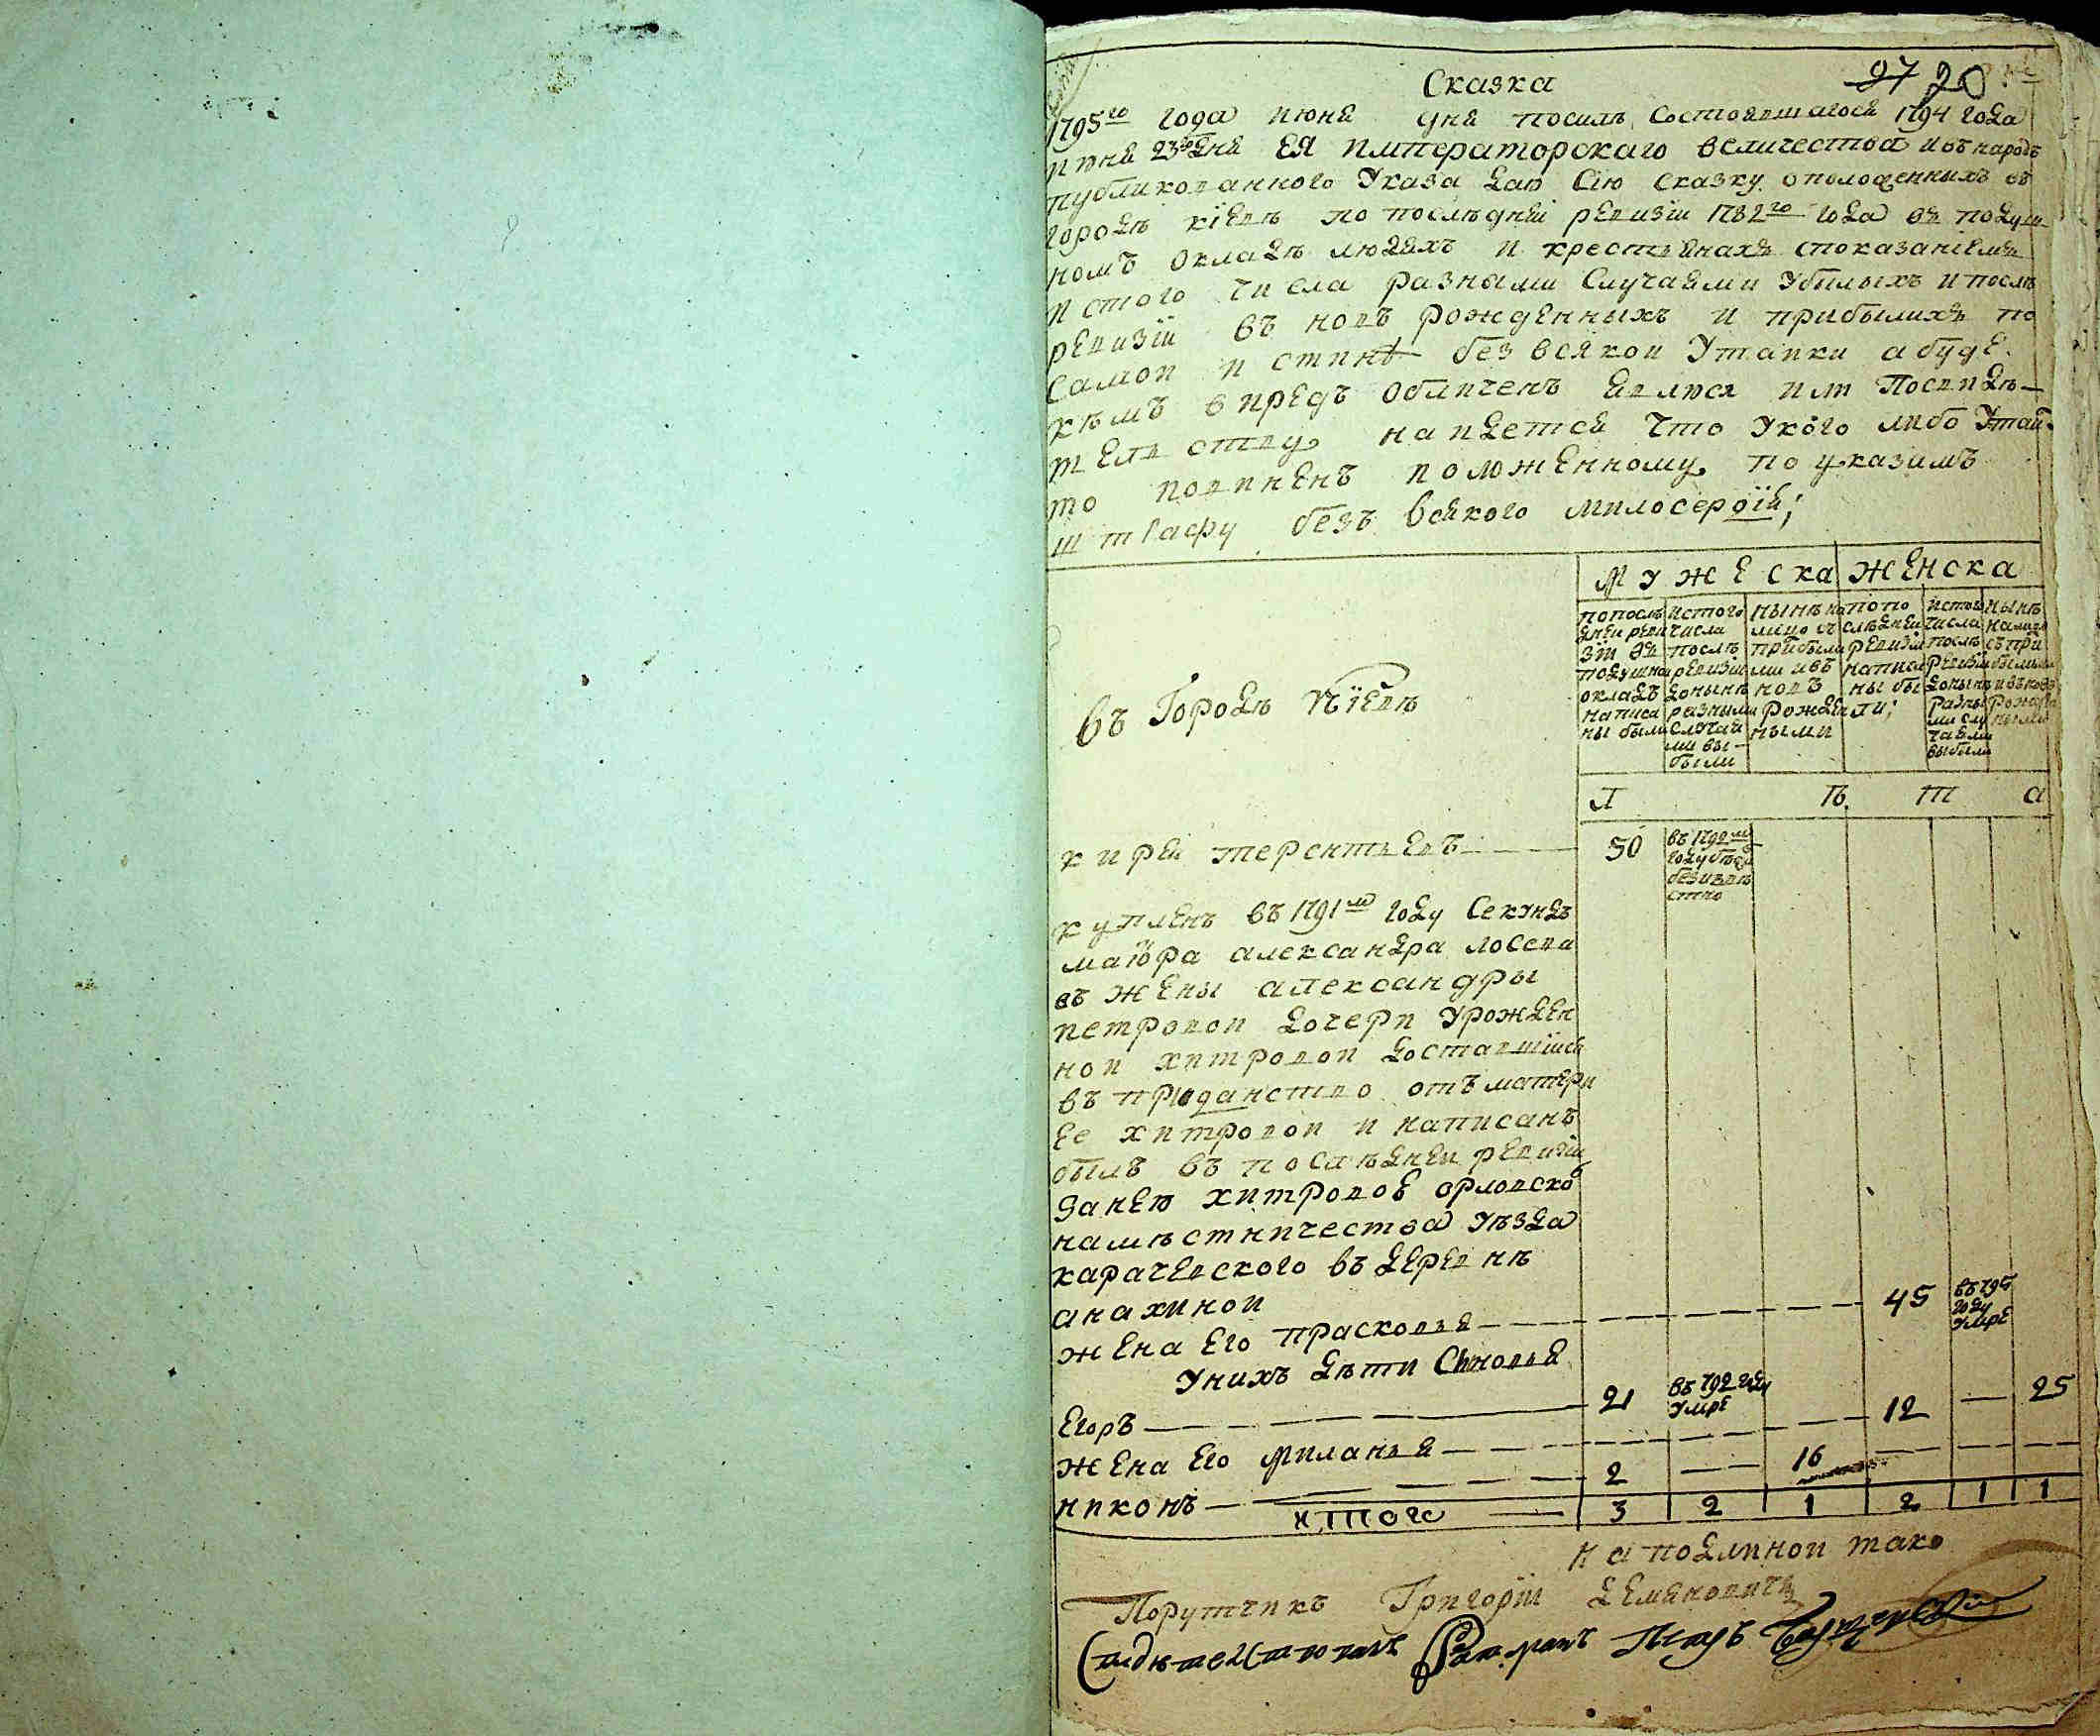 Сказка
97 20
1795го года июня дня посилѣ состоявшагося 1794 года
июня 23го дня ЕЯ императорскаго величества и въ народъ
публикованного указа даю сию сказку оположенныхъ въ
городѣ кїевѣ по послѣдней ревизїи 1782го года въ подуш
номъ окладѣ людяхъ и крестьянахъ споказанїемъ
истого числа разными случаями убылыхъ и послѣ
ревизїи въ новъ рожденныхъ и прибылихъ по
самой истинѣ без всякой утайки а буде
кѣмъ впредъ обличенъ явлюся или посвидѣ—
тельству найдется что укого либо утай
то повиненъ положенному по указамъ
штрафу безъ всякого милосердїя;
Мужеска Женска
попослѣ дней реви зїи въ подушном окладѣ написа ны были
истого числа послѣ ревизїи донынѣ разными случаи ми вы— были
нынѣ на лицо съ прибылы ми ивъ новъ рожден ными
попо слѣдней ревизїи написа ны бы ли;
истого числа послѣ ревизїи донынѣ разны ми слу чаями выбыли
нынѣ налицо съпри былыми ивъновъ рожден ными
въ Городѣ Кїевѣ
Л ѣ т а
кирей терентьевъ 50 въ 1790м году бѣжа безизвѣ стно
купленъ въ 1791м году секундъ
маїора александра лосева
въ жены александры
петровой дочери урожден
ной хитровой доставшїйся
въ приданство отъ матери
ее хитровой и написанъ
былъ въ послѣдней ревизїи
занею хитровое орловско
намѣстничества уѣзда
карачевского въ деревнѣ
анахиной
жена его прасковья 45 въ 795 году умре
унихъ дѣти сыновья
Егоръ 21 въ 792 году умре
жена его миланья 12 — 25
никонъ 2 — 16
итого 3 2 1 2 1 1
На подлиной тако
Порутчикъ Григорїй Деменовичъ